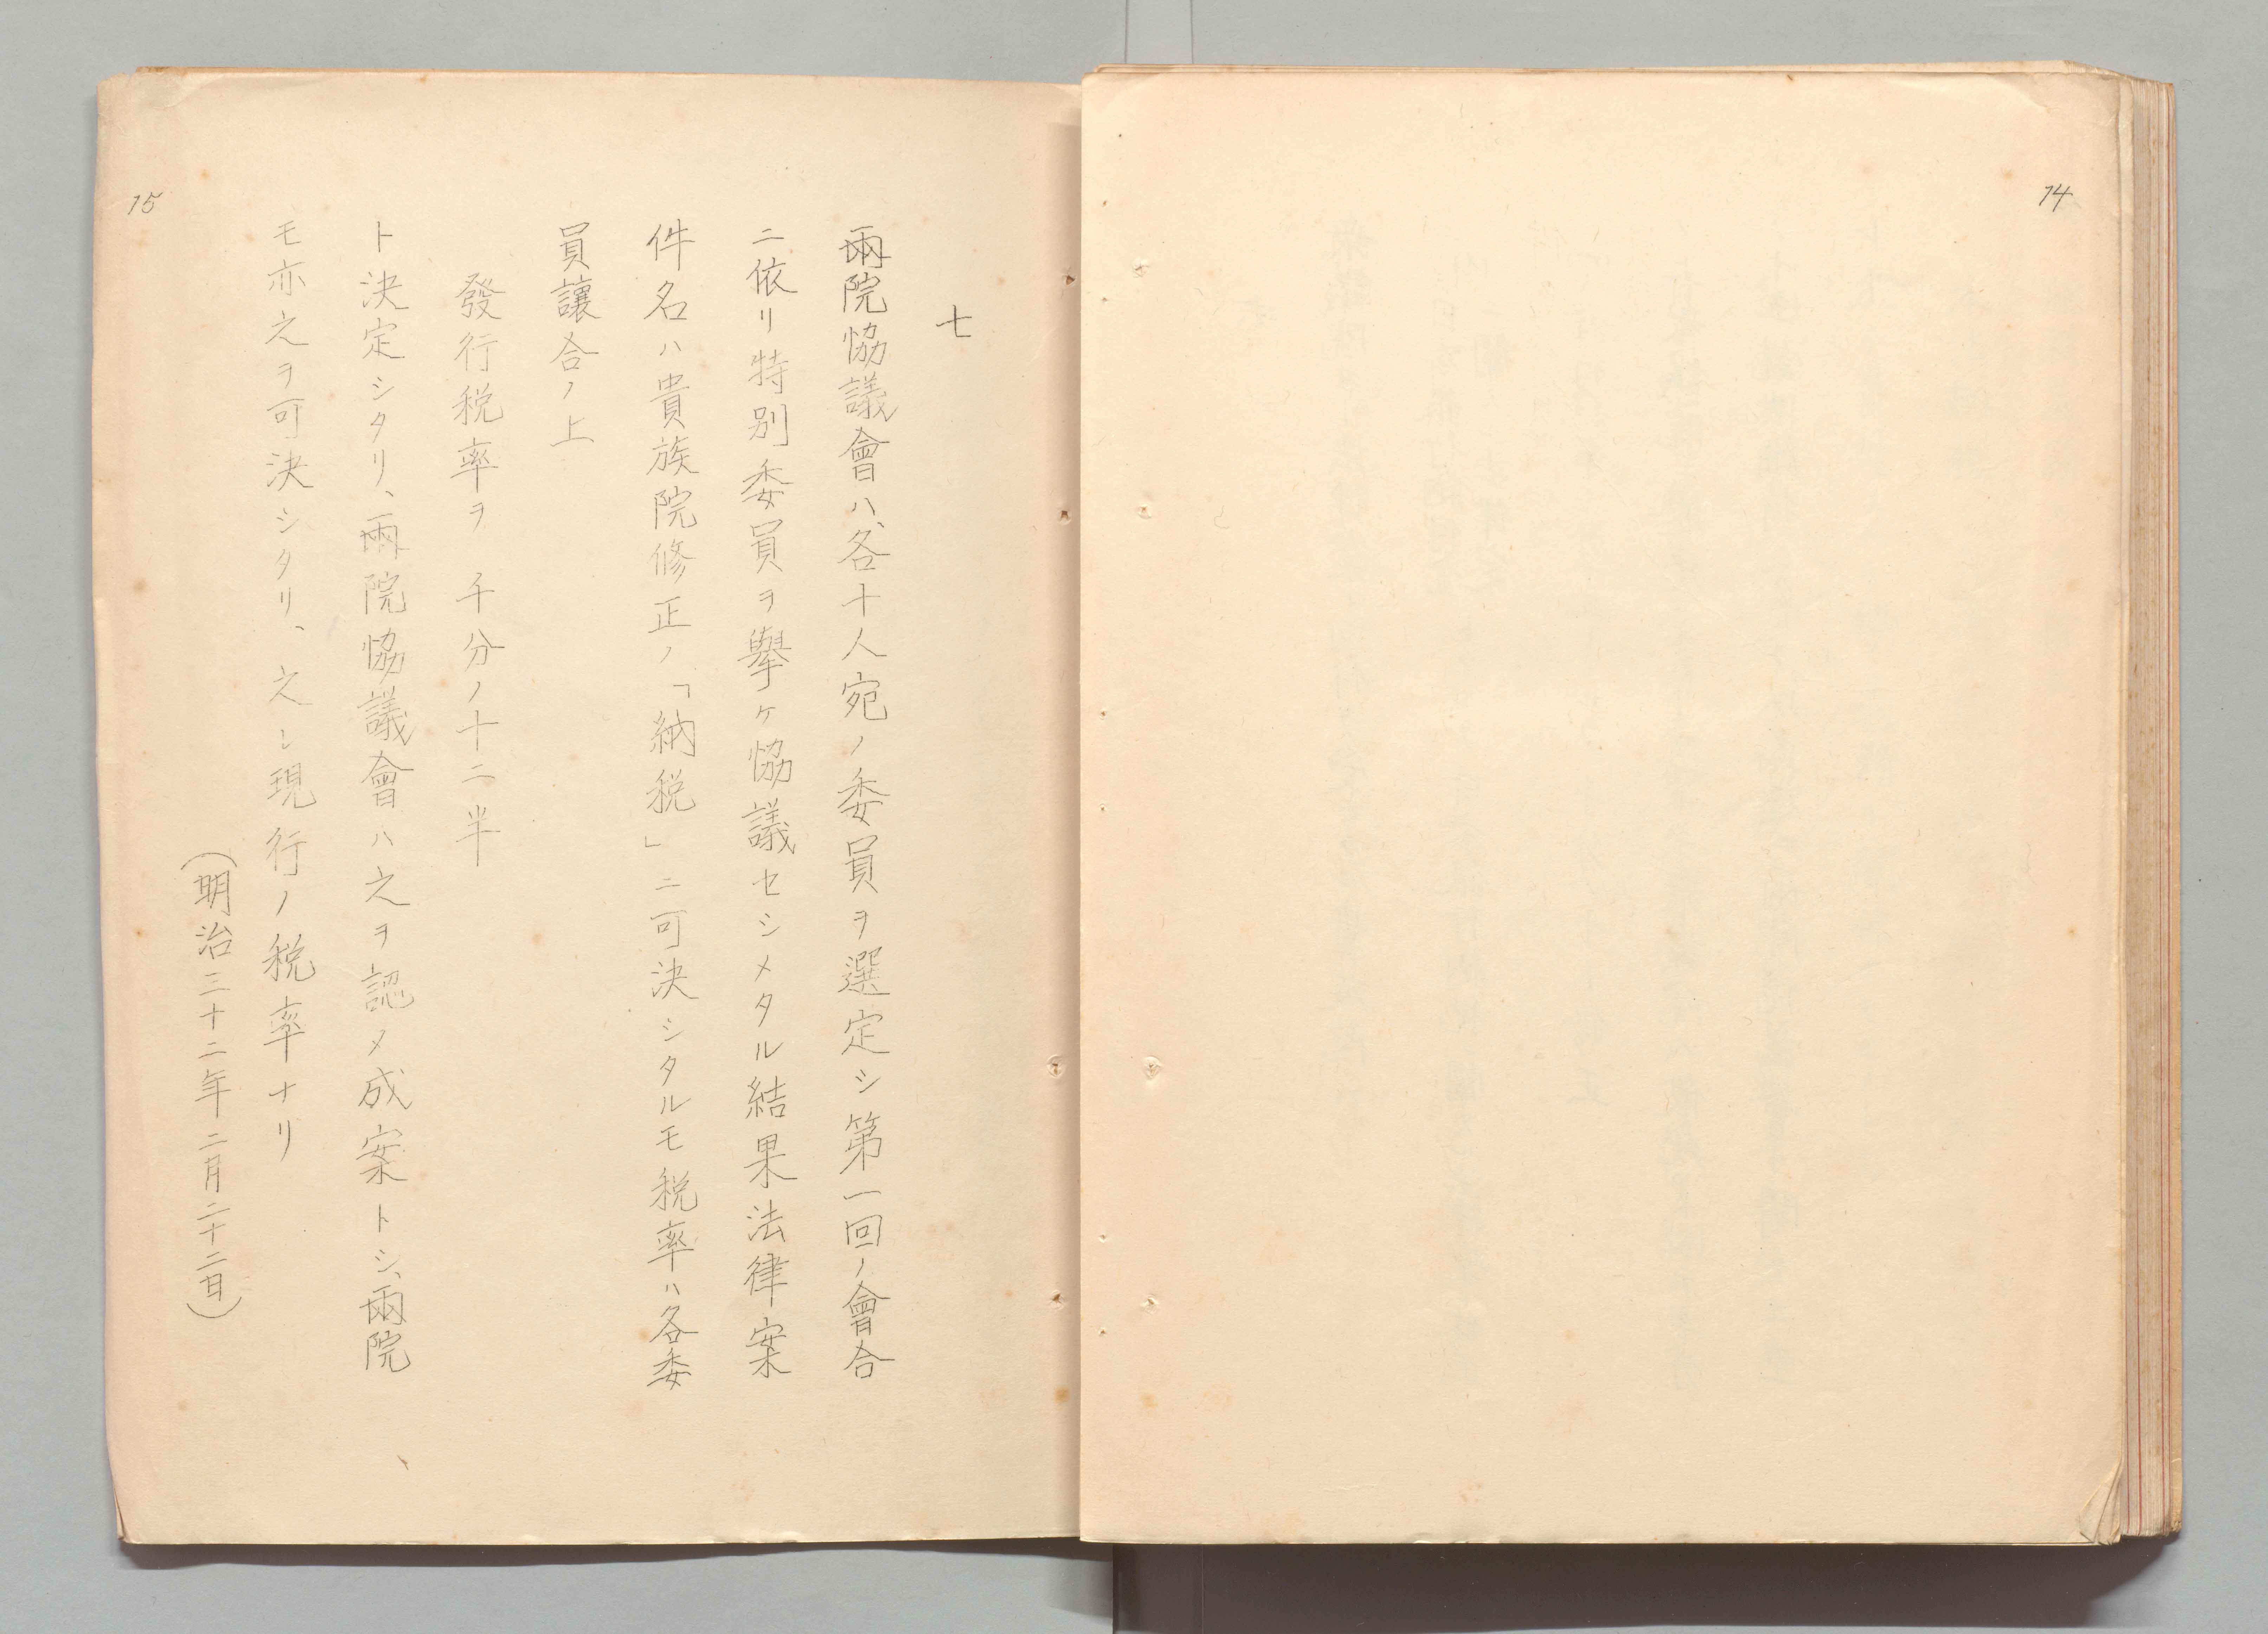 14
七
兩院協議會ハ、各十人宛ノ委員ヲ選定シ第一回ノ會合
ニ依リ特別委員ヲ擧ケ協議セシメタル結果法律案
件名ハ貴族院修正ノ「納税」ニ可決シタルモ税率ハ各委
員讓合ノ上
發行税率ヲ 千分ノ十二半
ト決定シタリ、兩院協議會ハ之ヲ認メ成案トシ、兩院
モ亦之ヲ可決シタリ、之レ現行ノ税率ナリ
(明治三十二年二月二十二日)
15